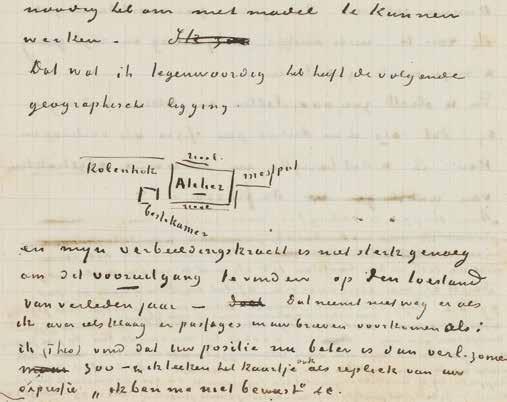 noodig heb om met model te kunnen
werken. Ik zou
Dat wat ik tegenwoordig heb heeft de volgende
geographische ligging.
riool.
Kolenhok Atelier mestput
riool
bestekamer
en mijn verbeeldingskracht is niet sterk genoeg
om dit vooruitgang te vinden op den toestand
van verleden jaar – doch dat neemt niet weg er als
ik over iets klaag er passages in uw brieven voorkomen als:
ik (Theo) vind dat uw positie nu beter is dan verl. zomer
zoo – ik teeken het kaartje ook als repliek van uw
expressie „ik ben me niet bewust" &c.